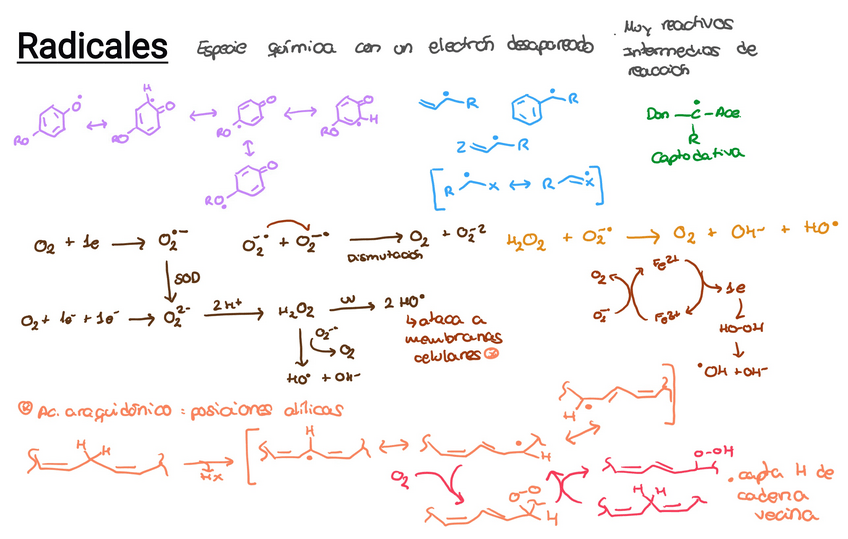 Radicales
Especie química con un electrón desapareado
. Muy reactivos
Intermedios de
reacción
O• H O O O
RO RO RO• RO H
RO• O
R R
2 R
[ R X ↔ R X ]
Don — Ċ — Ace
R
Captodativa
O₂ + 1e → O₂•⁻
O₂•⁻ + O₂⁻• → O₂ + O₂⁻²
Dismutación
H₂O₂ + O₂⁻• → O₂ + OH⁻ + HO•
SOD
O₂ + 1e⁻ + 1e⁻ → O₂²⁻ 2H⁺ → H₂O₂ → 2 HO•
↳ ataca a
membranas
celulares
O₂⁻•
O₂
HO• + OH⁻
O₂ Fe²⁺
O₂⁻ Fe³⁺
1e
HO-OH
•OH + OH⁻
Ac. araquidónico : posiciones alílicas
H H
H
H
H
O₂
O-O
H
O-OH
H H
. capta H de
cadena
vecina